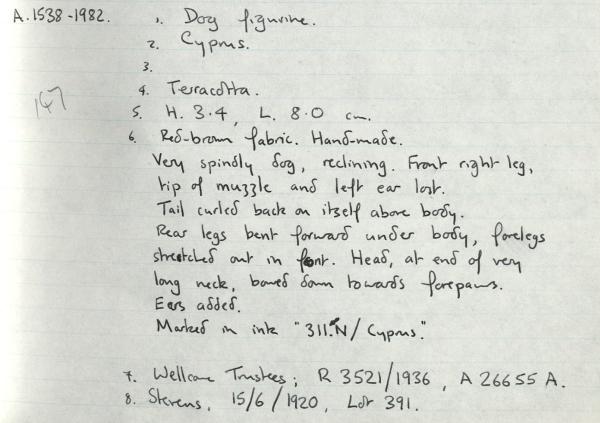 A.1538-1982.
1. Dog figurine.
2. Cyprus.
3.
4. Terracotta.
147
5. H. 3.4, L. 8.0 cm.
6. Red-brown fabric. Hand-made.
Very spindly dog, reclining. Front right leg,
tip of muzzle and left ear lost.
Tail curled back on itself above body.
Rear legs bent forward under body, forelegs
stretched out in front. Head, at end of very
long neck, bowed down towards forepaws.
Ears added.
Marked in ink "311.N/Cyprus."
7. Wellcome Trustees; R 3521/1936, A 26655 A.
8. Stevens, 15/6/1920, Lot 391.